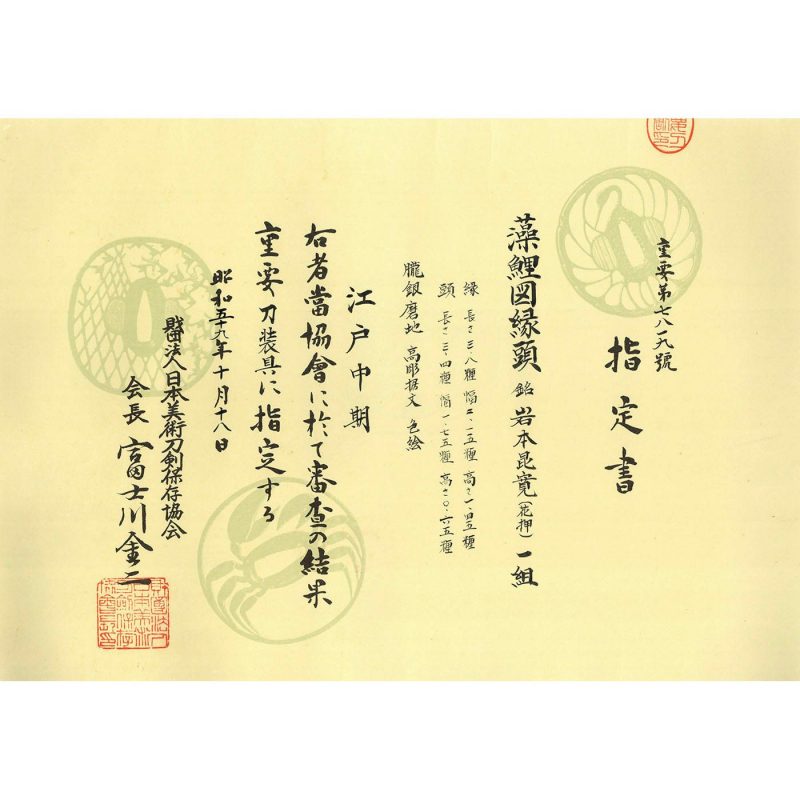 重要第七八一九號
指定書
藻鯉図縁頭 銘 岩本昆寛(花押) 一組
縁 長さ三・八糎 幅
頭 長さ三・四糎 幅一・七五糎 高さ〇・六五糎
朧銀磨地 高彫据文 色絵
江戸中期
右者當協會に於て審査の結果
重要刀装具に指定する
昭和五十九年十月十八日
財団法人日本美術刀剣保存協会
会長 富士川金二